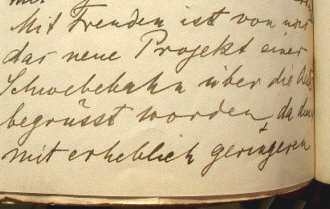 Mit Freuden ist von uns
das neue Projekt einer
Schwebebahn über die
begrüsst worden, da
mit erheblich geringeren